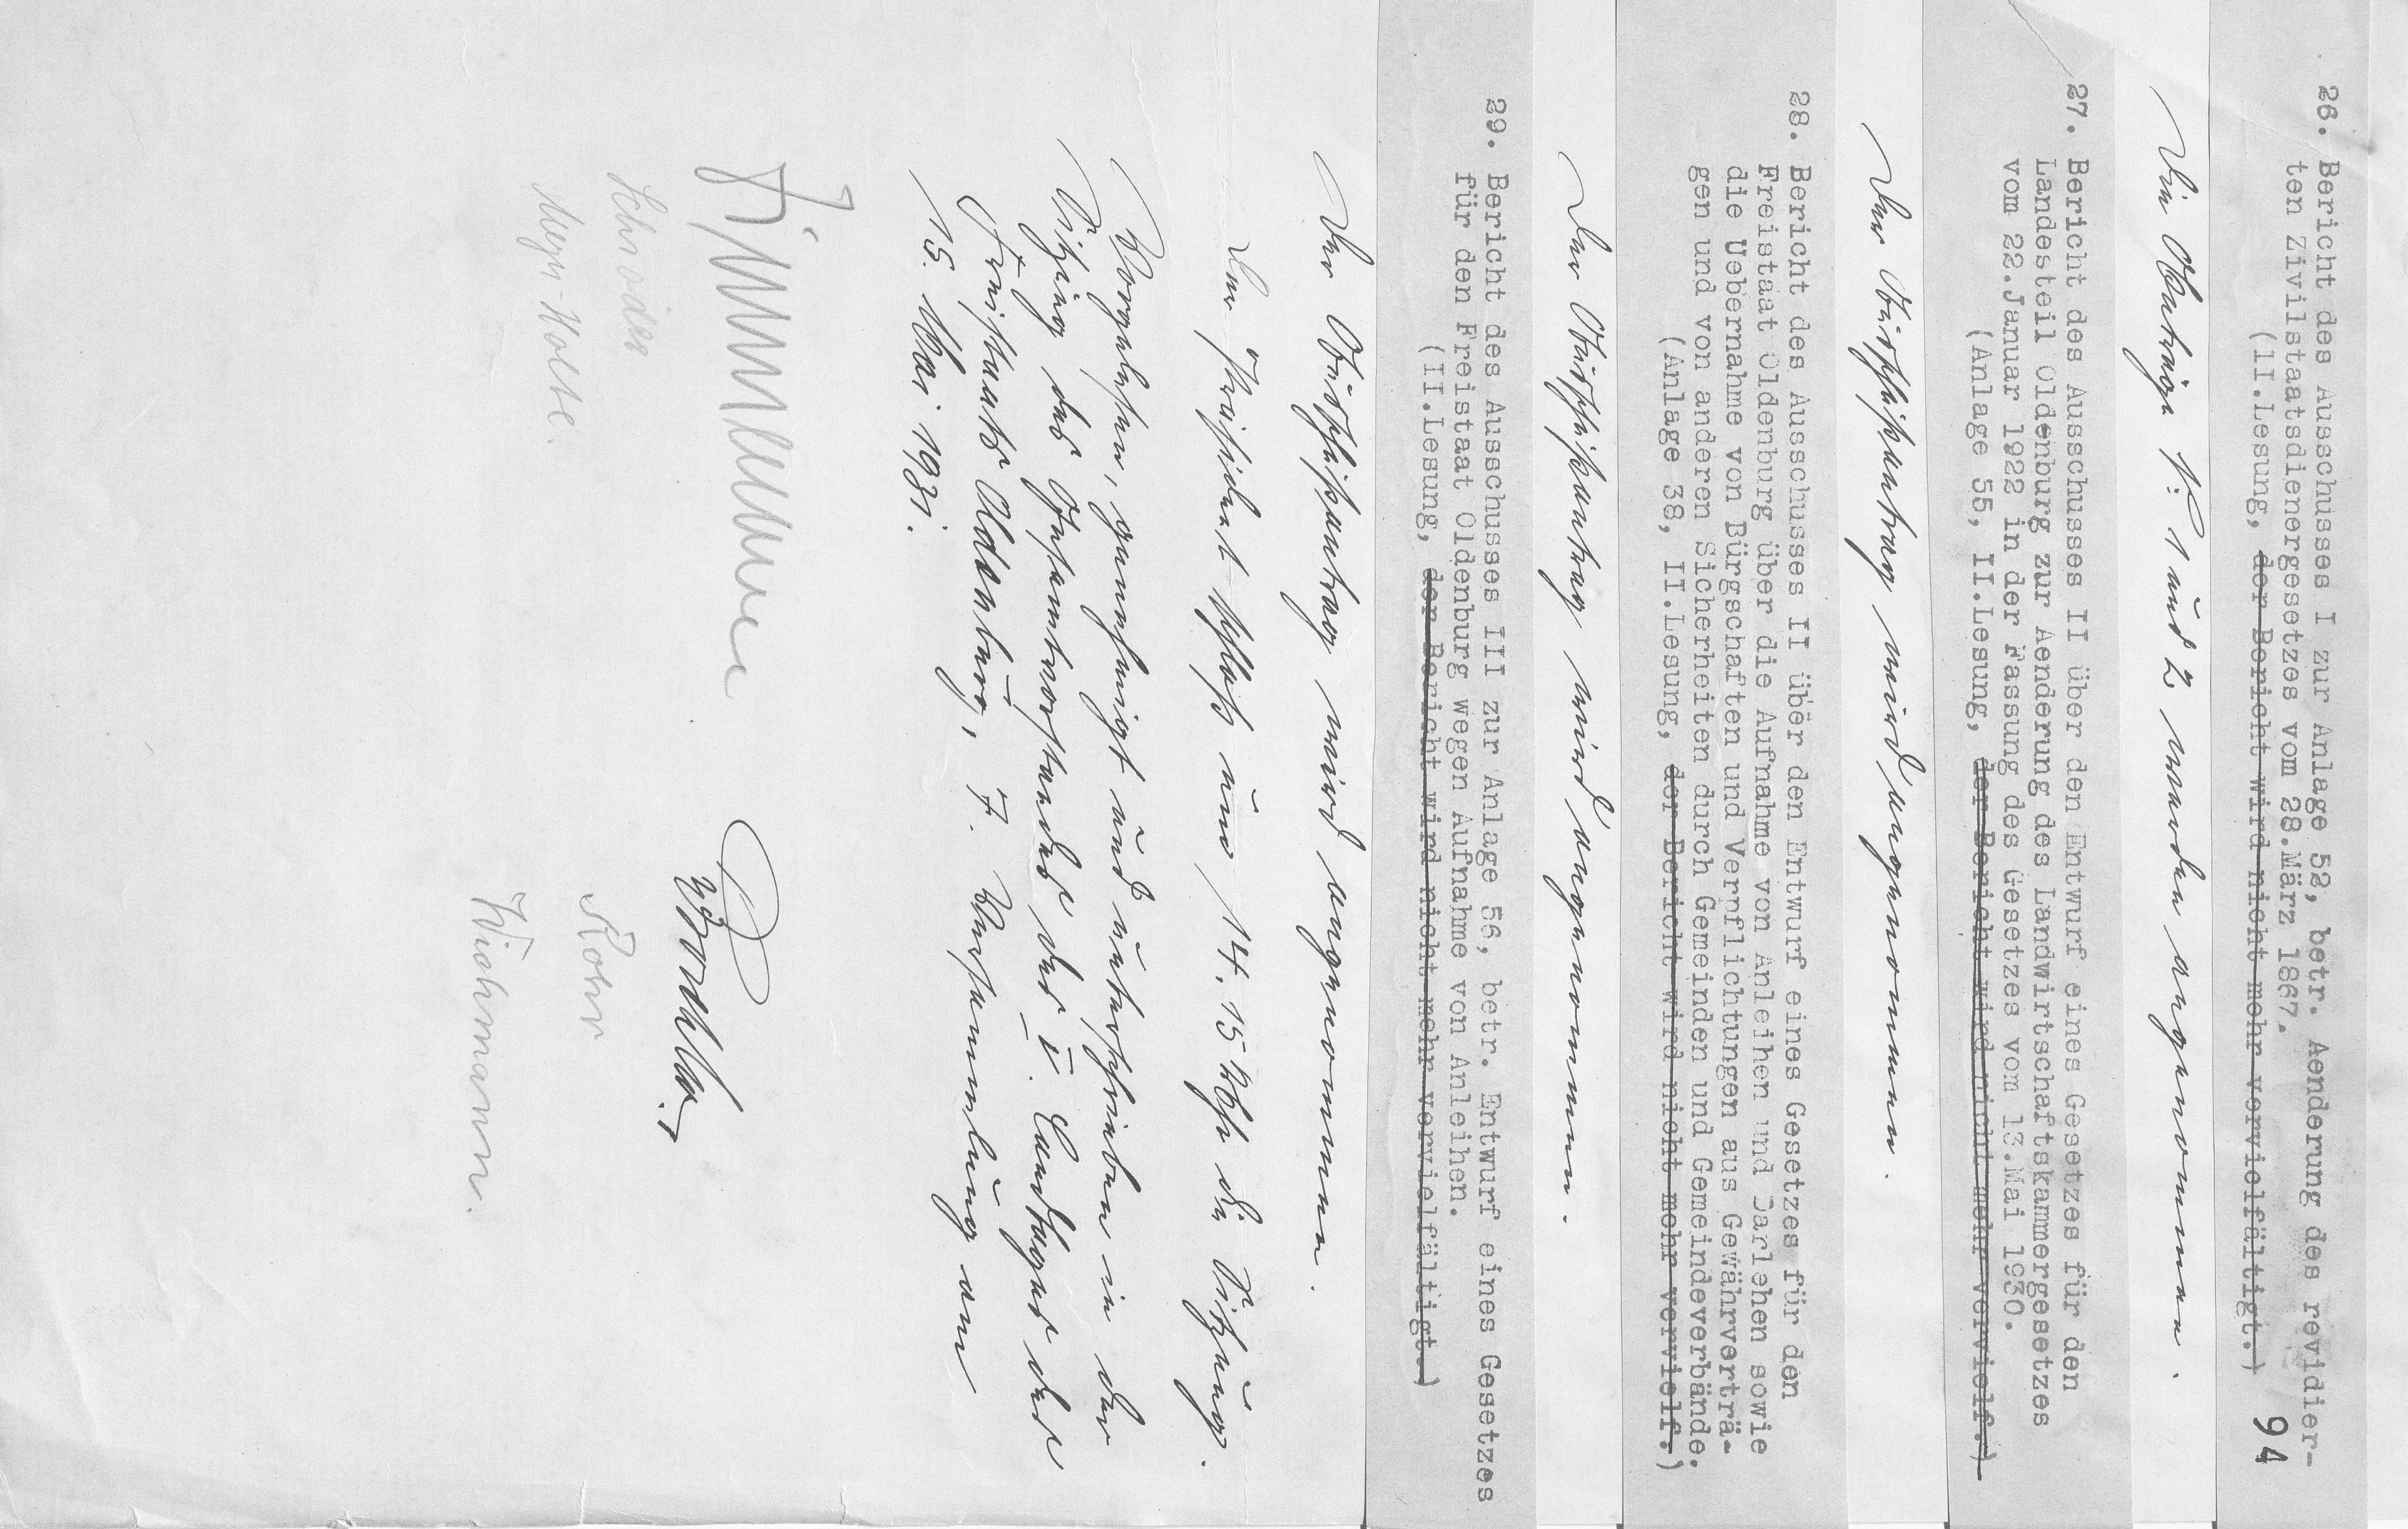 26. Bericht des Ausschusses I zur Anlage 52, betr. Aenderung des revidier-
ten Zivilstaatsdienergesetzes vom 28.März 1867.
(II.Lesung, der Bericht wird nicht mehr vervielfältigt.)
94
Die Anträge N. 1 und 2 werden angenommen.
27. Bericht des Ausschusses II über den Entwurf eines Gesetzes für den
Landesteil Oldenburg zur Aenderung des Landwirtschaftskammergesetzes
vom 22.Januar 1922 in der Fassung des Gesetzes vom 13.Mai 1930.
(Anlage 55, II.Lesung, der Bericht wird nicht mehr vervielf.)
Der Ausschußantrag wird angenommen.
28. Bericht des Ausschusses II über den Entwurf eines Gesetzes für den
Freistaat Oldenburg über die Aufnahme von Anleihen und Darlehen sowie
die Uebernahme von Bürgschaften und Verpflichtungen aus Gewährverträ-
gen und von anderen Sicherheiten durch Gemeinden und Gemeindeverbände.
(Anlage 38, II.Lesung, der Bericht wird nicht mehr vervielf.)
Der Ausschußantrag wird angenommen.
29. Bericht des Ausschusses III zur Anlage 56, betr. Entwurf eines Gesetzes
für den Freistaat Oldenburg wegen Aufnahme von Anleihen.
(II.Lesung, der Bericht wird nicht mehr vervielfältigt.)
Der Ausschußantrag wird angenommen.
Der Präsident schließt um 14.15 Uhr die Sitzung.
Vorgelesen, genehmigt und unterschrieben in der
Sitzung des Gesamtvorstandes des V. Landtages des
Freistaats Oldenburg, 7. Versammlung am
15. Mai 1931.
Zimmermann
Schröder Rohr
Meyer-Holte. Wichmann.